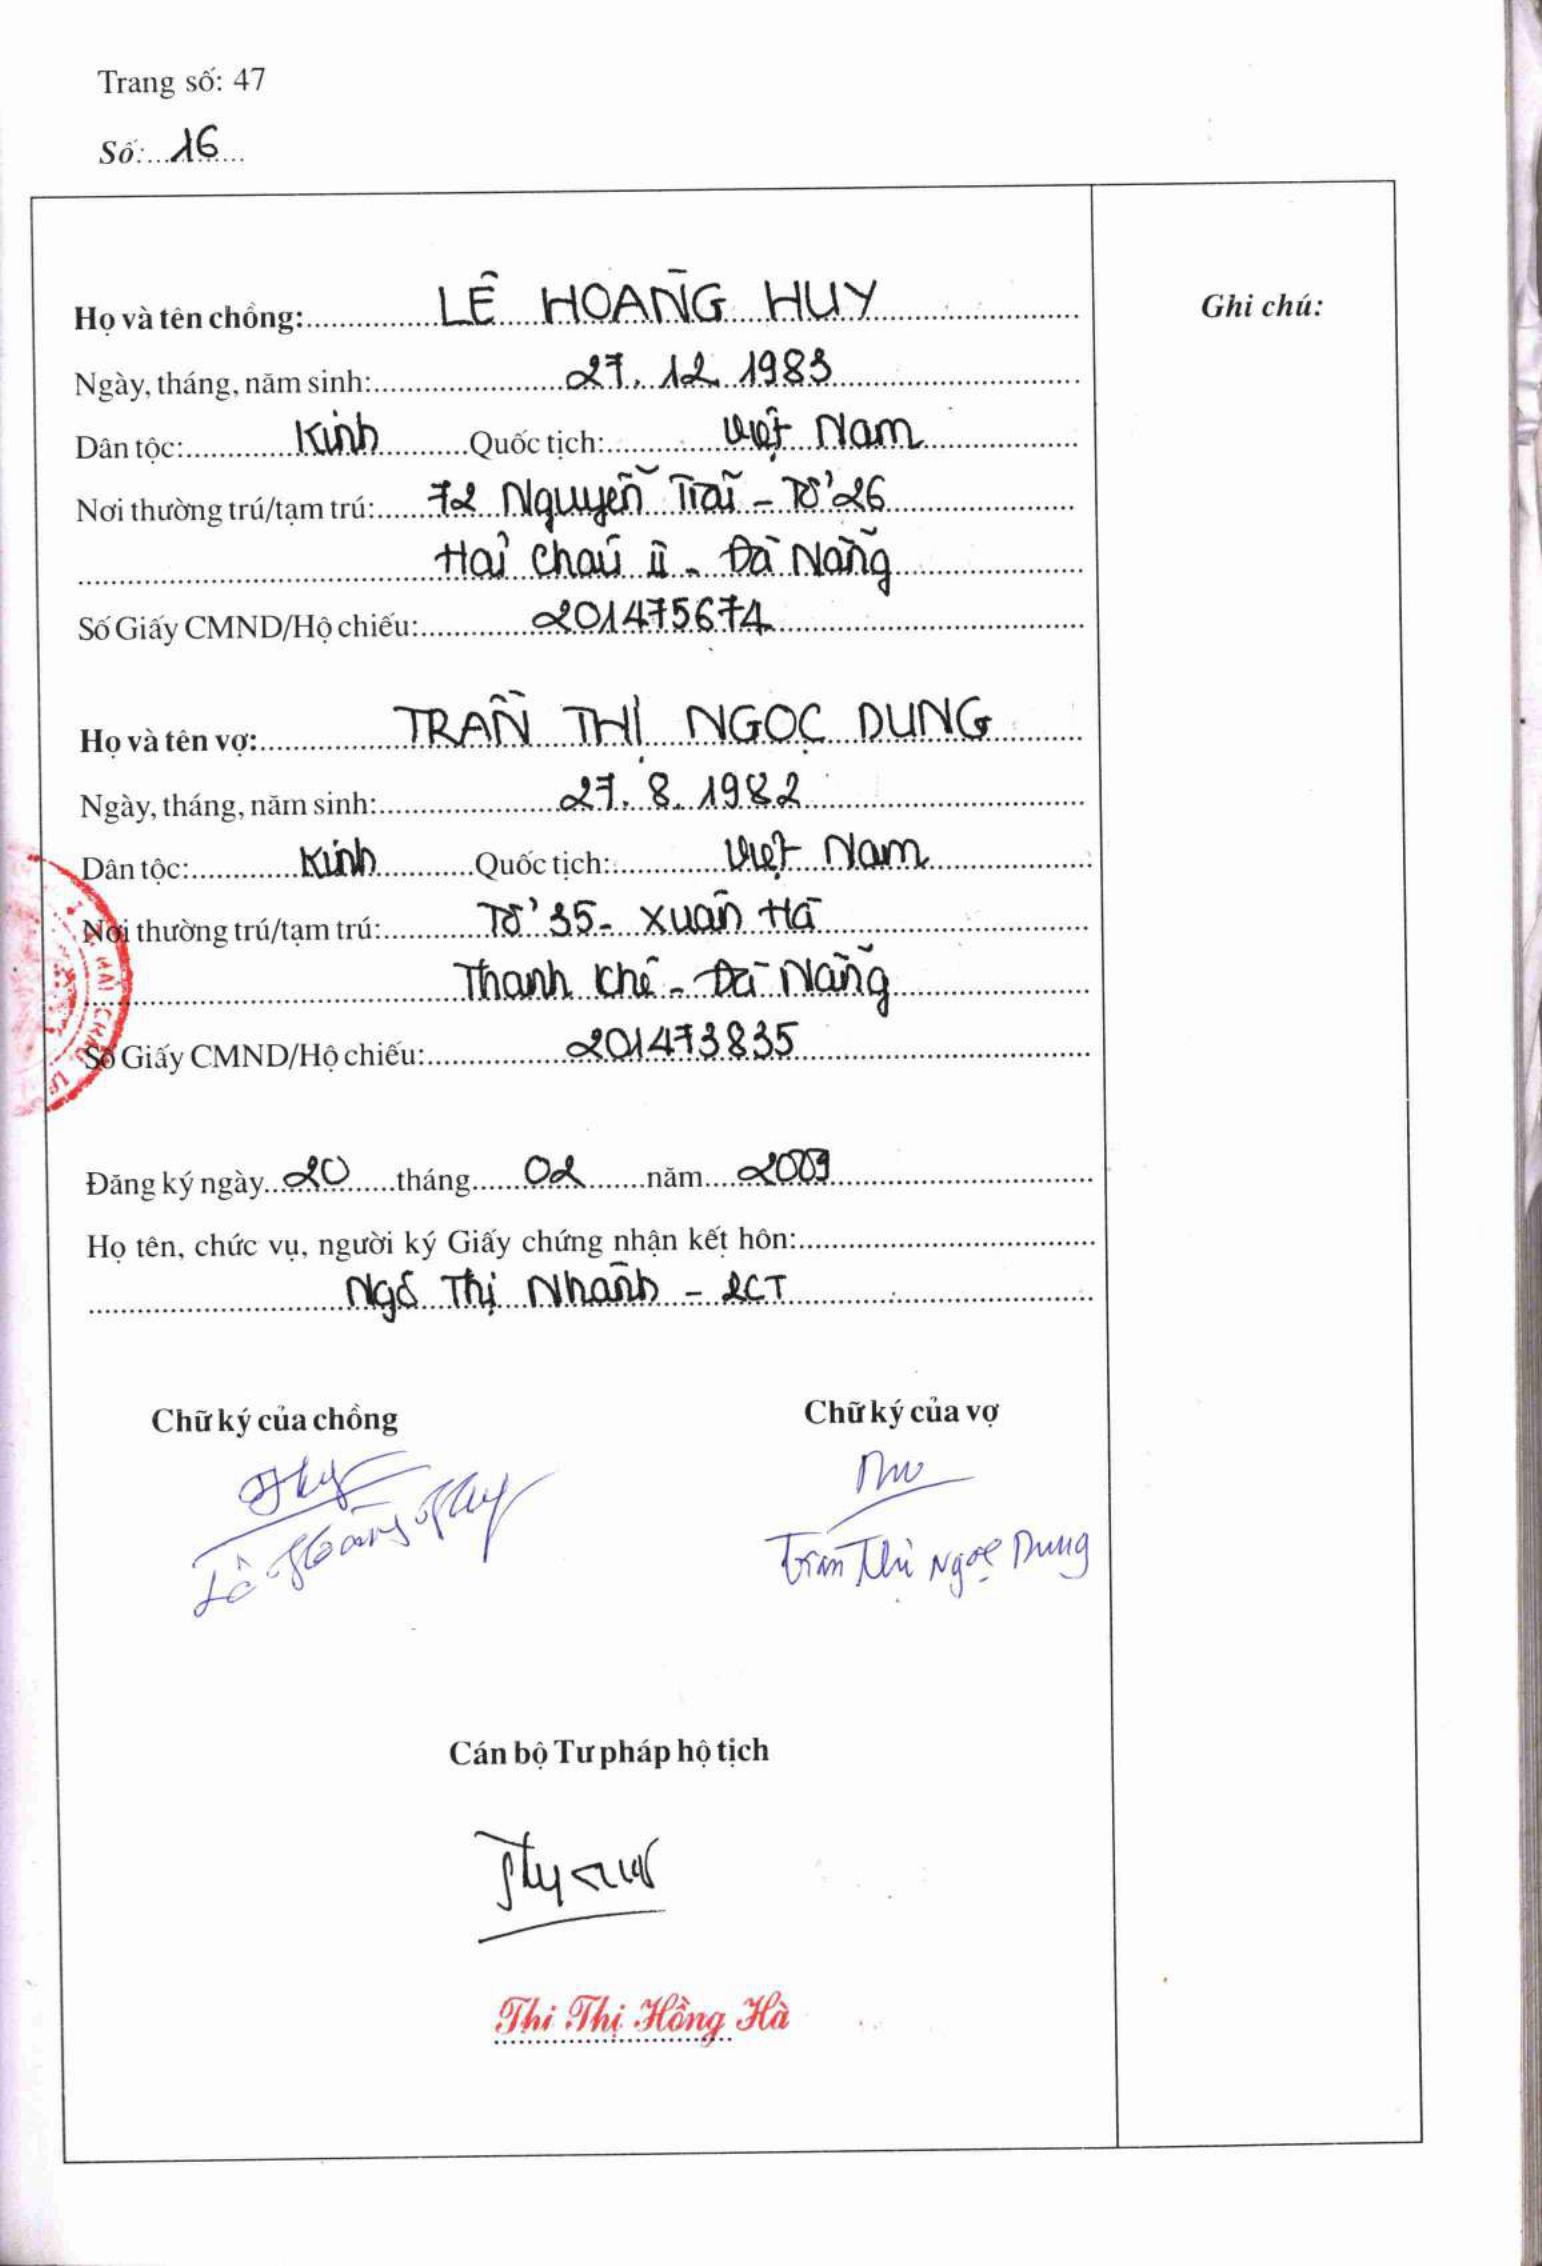 Trang số: 47
Số: 16
Họ và tên chồng: LÊ HOÀNG HUY
Ghi chú:
Ngày, tháng, năm sinh: 27.12.1983
Dân tộc: Kinh Quốc tịch: Việt Nam
Nơi thường trú/tạm trú: 72 Nguyễn Trãi - Tổ 26
Hải Châu II - Đà Nẵng
Số Giấy CMND/Hộ chiếu: 201475674
Họ và tên vợ: TRẦN THỊ NGỌC DUNG
Ngày, tháng, năm sinh: 27.8.1982
Dân tộc: Kinh Quốc tịch: Việt Nam
Nơi thường trú/tạm trú: Tổ 35 - Xuân Hà
Thanh Khê - Đà Nẵng
HẢI CHÂU
Số Giấy CMND/Hộ chiếu: 201473835
Đăng ký ngày 20 tháng 02 năm 2009
Họ tên, chức vụ, người ký Giấy chứng nhận kết hôn:
Ngô Thị Nhành - PCT
Chữ ký của chồng Chữ ký của vợ
Lê Hoàng Huy Trần Thị Ngọc Dung
Cán bộ Tư pháp hộ tịch
Thi Thị Hồng Hà